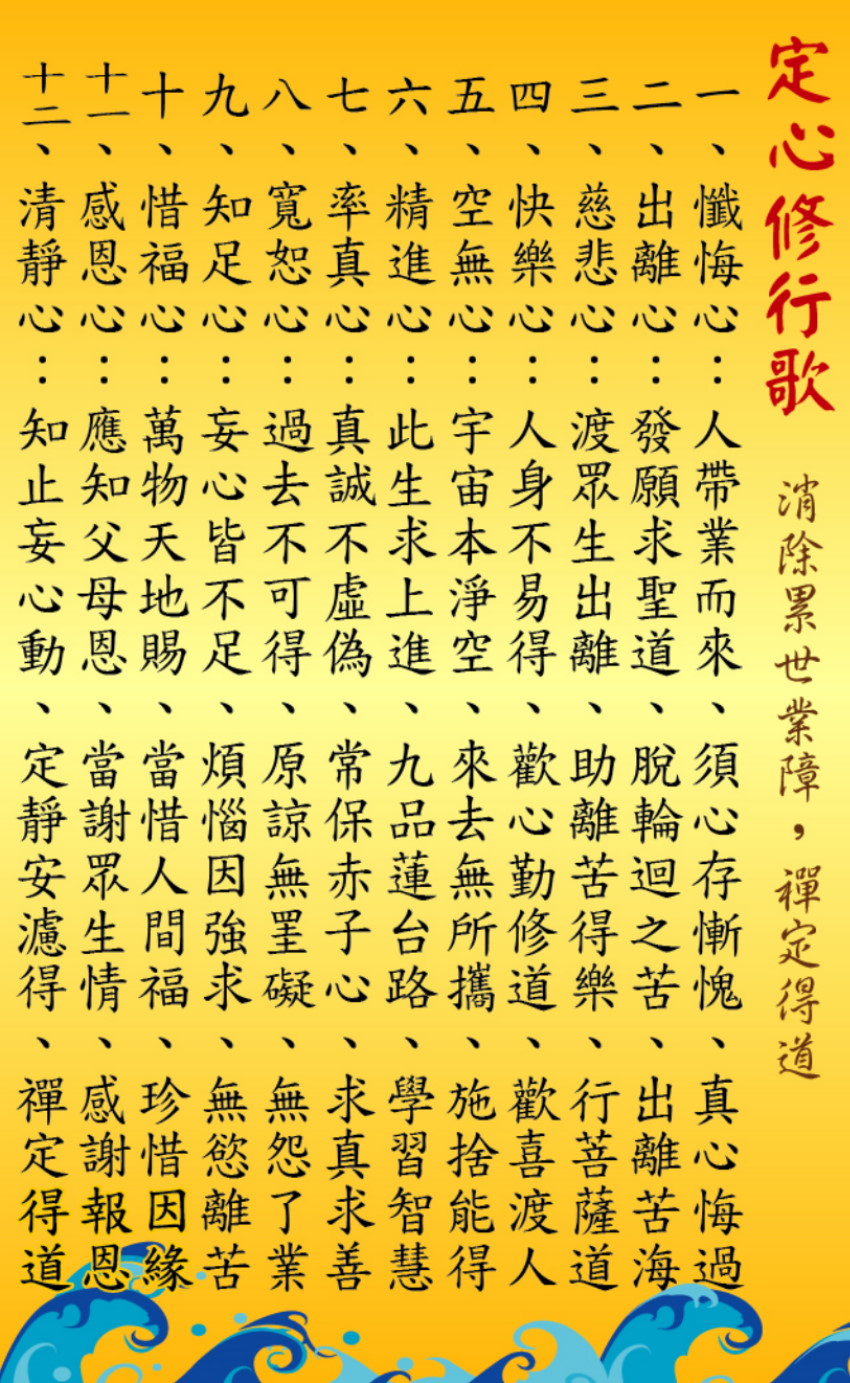 定心修行歌
消除累世業障，禪定得道
一、懺悔心：人帶業而來、須心存慚愧、真心悔過
二、出離心：發願求聖道、脫輪迴之苦、出離苦海
三、慈悲心：渡眾生出離、助離苦得樂、行菩薩道
四、快樂心：人身不易得、歡心勤修道、歡喜渡人
五、空無心：宇宙本淨空、來去無所攜、施捨能得
六、精進心：此生求上進、九品蓮台路、學習智慧
七、率真心：真誠不虛偽、常保赤子心、求真求善
八、寬恕心：過去不可得、原諒無罣礙、無怨了業
九、知足心：妄心皆不足、煩惱因強求、無慾離苦
十、惜福心：萬物天地賜、當惜人間福、珍惜因緣
十一、感恩心：應知父母恩、當謝眾生情、感謝報恩
十二、清靜心：知止妄心動、定靜安濾得、禪定得道